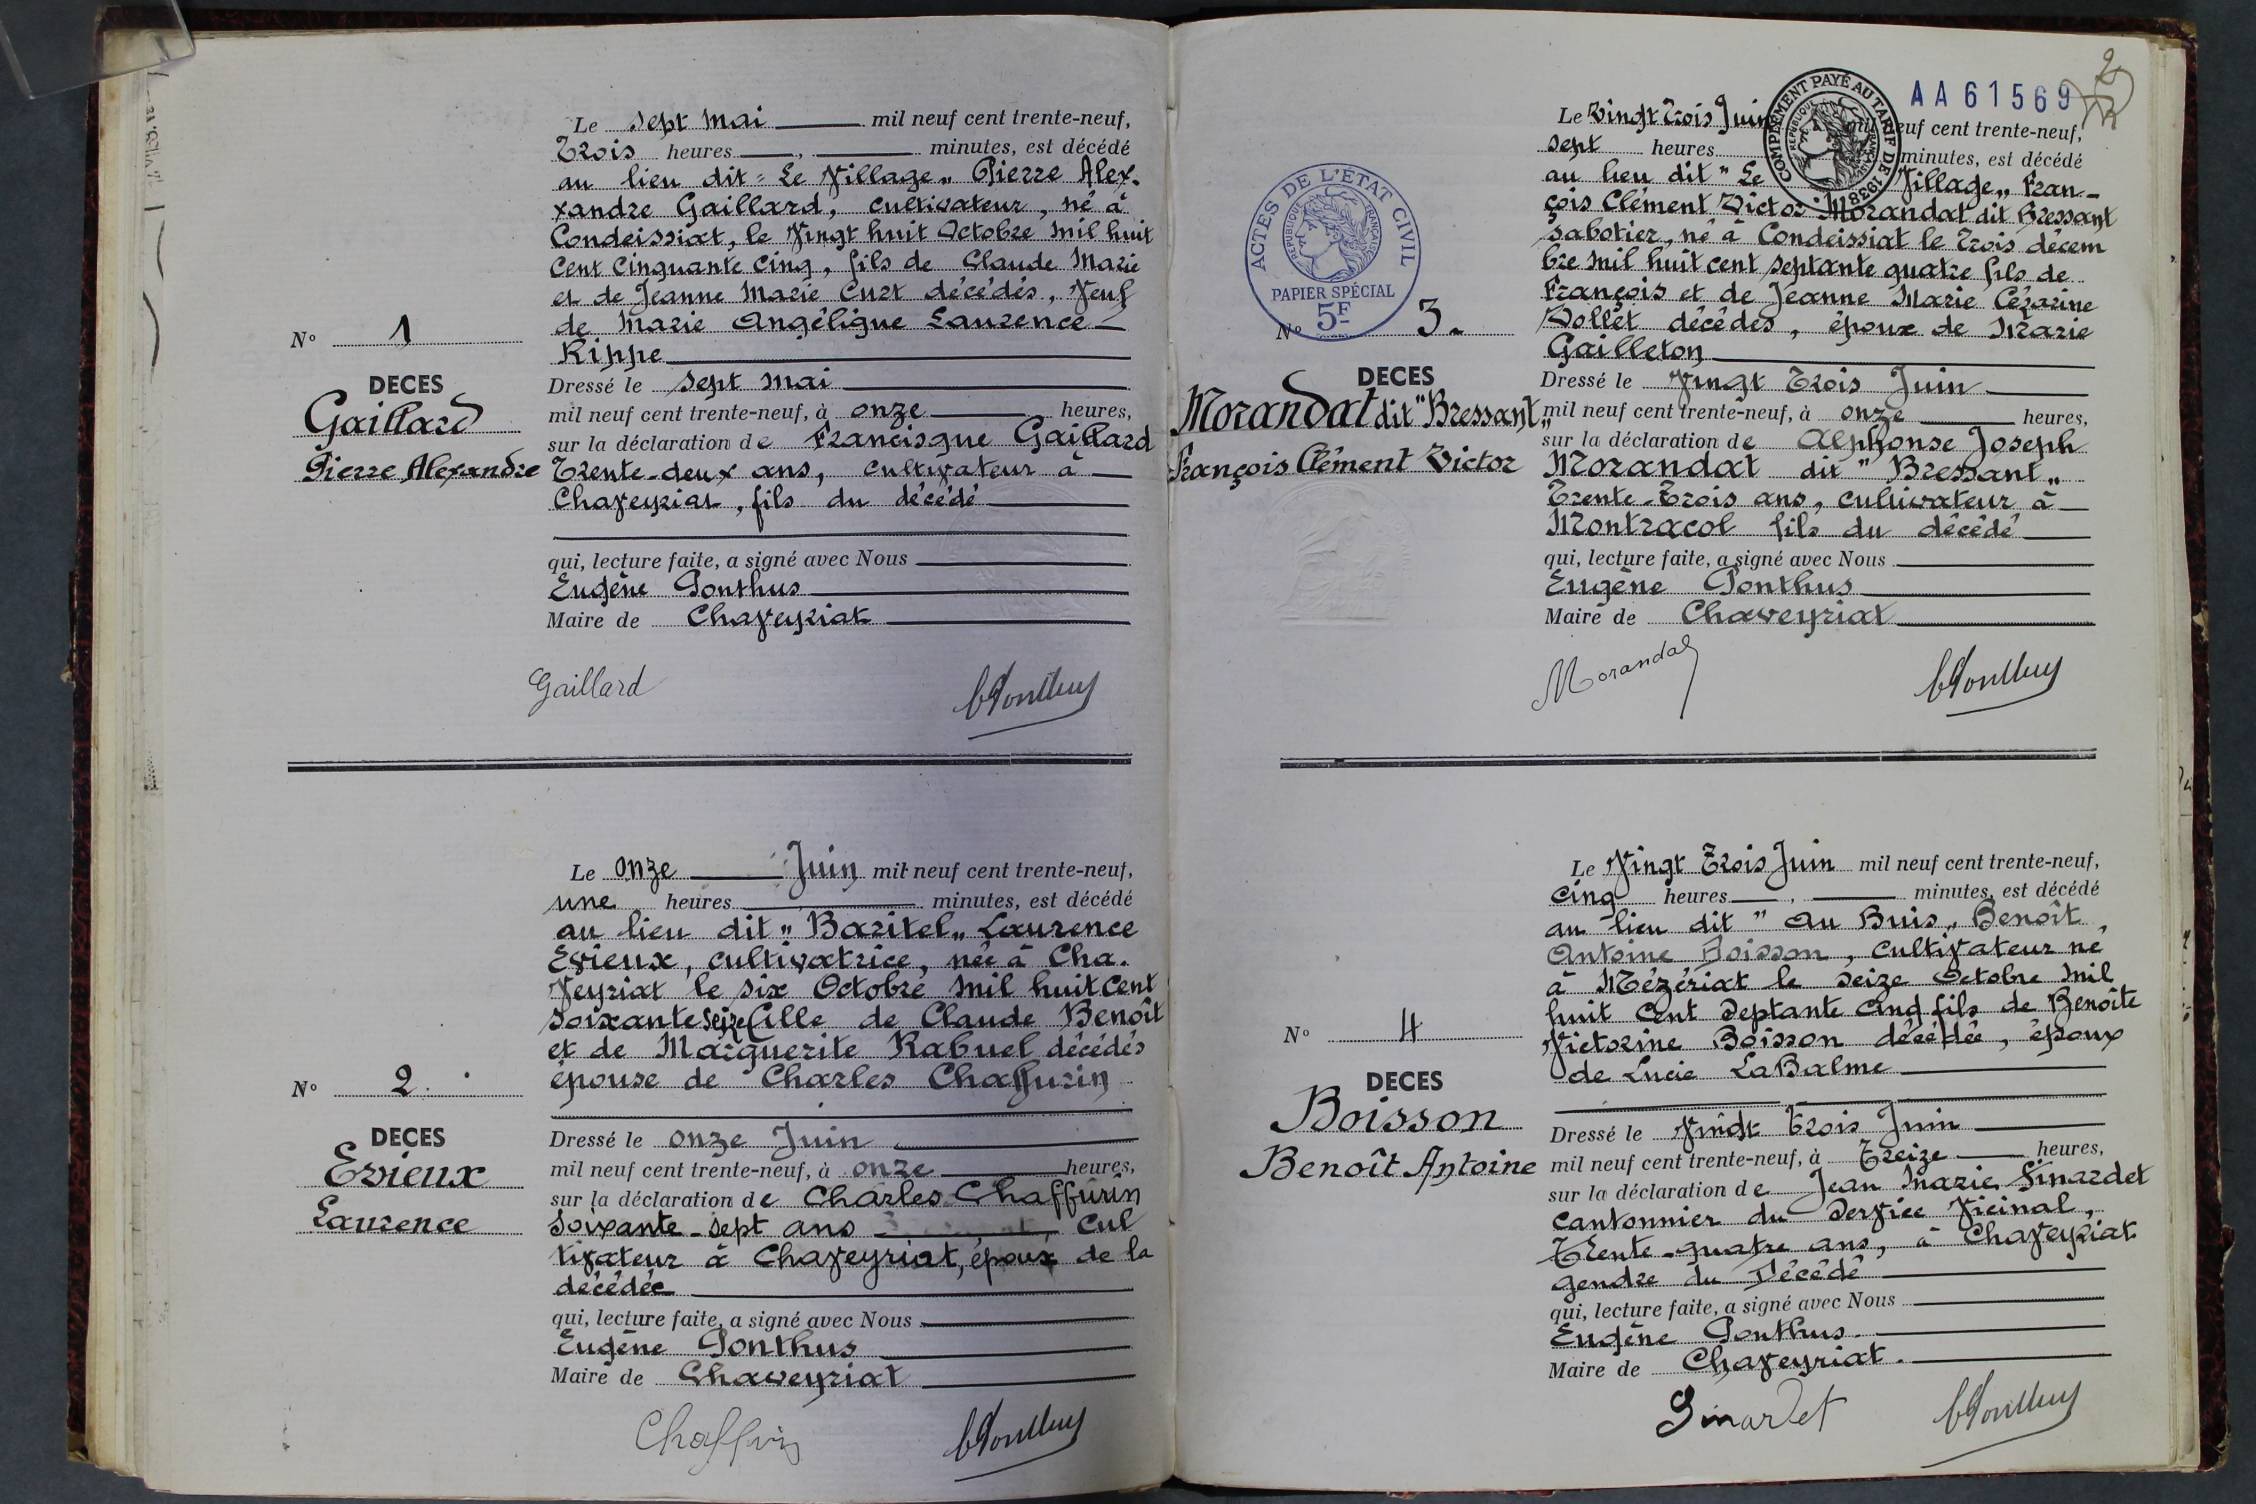 Le sept mai mil neuf cent trente-neuf,
Trois heures , minutes, est décédé
au lieu dit " Le Village " Pierre Alex-
xandre Gaillard, cultivateur, né à
Condeissiat, le Vingt huit Octobre mil huit
Cent Cinquante Cinq, fils de Claude Marie
et de Jeanne Marie Curt décédés, Veuf
de Marie Angélique Laurence
Rippe
N° 1
DECES
Gaillard
Pierre Alexandre
Dressé le sept mai
mil neuf cent trente-neuf, à onze heures,
sur la déclaration de Francisque Gaillard
Trente-deux ans, cultivateur à
Chaveyriat, fils du décédé
qui, lecture faite, a signé avec Nous
Eugène Ponthus
Maire de Chaveyriat
Gaillard
EPonthus
Le onze Juin mil neuf cent trente-neuf,
une heures minutes, est décédé
au lieu dit " Baritel " Laurence
Evieux, cultivatrice, née à Cha-
Veyriat le six Octobre mil huit Cent
soixante seize fille de Claude Benoît
et de Marguerite Rabuel décédés
épouse de Charles Chaffurin
N° 2.
DECES
Evieux
Laurence
Dressé le onze Juin
mil neuf cent trente-neuf, à onze heures,
sur la déclaration de Charles Chaffurin
soixante-sept ans , cul
tivateur à Chaveyriat, époux de la
décédée
qui, lecture faite, a signé avec Nous
Eugène Ponthus
Maire de Chaveyriat
Chaffurin
EPonthus
2
AA61569
COMPLÉMENT PAYÉ AU TARIF DE 1938
REPUBLIQUE FRANÇAISE
Le Vingt Trois Juin mil neuf cent trente-neuf,
sept heures minutes, est décédé
au lieu dit " Le Village " Fran-
çois Clément Victor Morandat dit Bressant
sabotier, né à Condeissiat le Trois décem
bre mil huit cent septante quatre fils de
François et de Jeanne Marie Cézarine
Vollet décédés, époux de Marie
Gailleton
ACTES DE L'ÉTAT CIVIL
REPUBLIQUE FRANÇAISE
PAPIER SPÉCIAL
5F
N° 3.
DECES
Morandat dit "Bressant"
François Clément Victor
Dressé le Vingt Trois Juin
mil neuf cent trente-neuf, à onze heures,
sur la déclaration de Alphonse Joseph
Morandat dit " Bressant "
Trente-Trois ans, cultivateur à
Montracol fils du décédé
qui, lecture faite, a signé avec Nous
Eugène Ponthus
Maire de Chaveyriat
Morandat
EPonthus
Le Vingt Trois Juin mil neuf cent trente-neuf,
cinq heures , minutes, est décédé
au lieu dit " Au Buis " Benoît
Antoine Boisson, cultivateur né
à Mézériat le seize Octobre mil
huit Cent Septante Cinq fils de Benoîte
Victorine Boisson décédée, époux
de Lucie LaBalme
N° 4
DECES
Boisson
Benoît Antoine
Dressé le Vingt Trois Juin
mil neuf cent trente-neuf, à Treize heures,
sur la déclaration de Jean Marie Sinardet
Cantonnier du Service Vicinal,
Trente-quatre ans, à Chaveyriat
gendre du Décédé
qui, lecture faite, a signé avec Nous
Eugène Ponthus.
Maire de Chaveyriat.
Sinardet
EPonthus